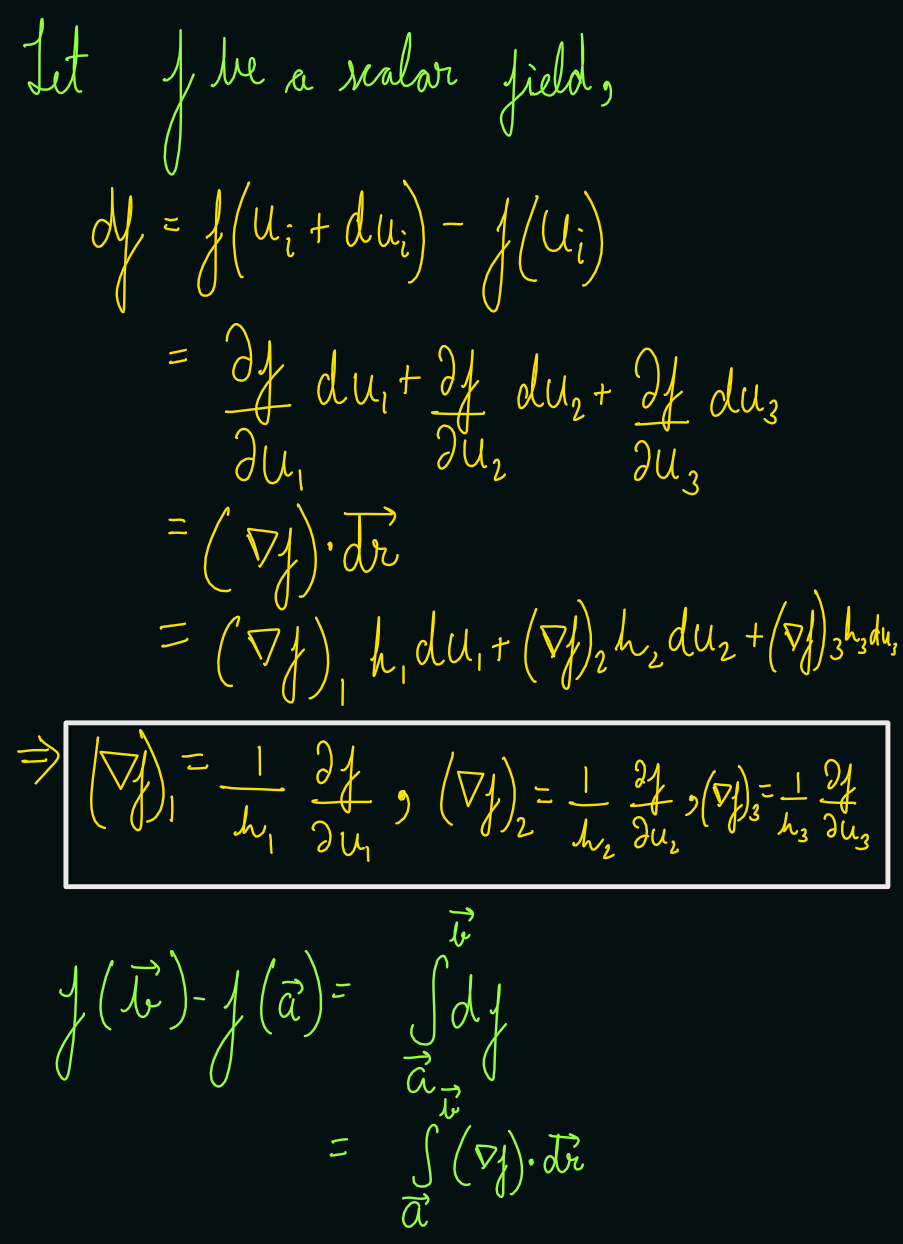 Let f be a scalar field,
df = f(u_i + du_i) - f(u_i)
= ∂f/∂u_1 du_1 + ∂f/∂u_2 du_2 + ∂f/∂u_3 du_3
= (∇f)·\vec{dr}
= (∇f)_1 h_1 du_1 + (∇f)_2 h_2 du_2 + (∇f)_3 h_3 du_3
⇒ (∇f)_1 = 1/h_1 ∂f/∂u_1 , (∇f)_2 = 1/h_2 ∂f/∂u_2 , (∇f)_3 = 1/h_3 ∂f/∂u_3
f(\vec{b}) - f(\vec{a}) = ∫_{\vec{a}}^{\vec{b}} df
= ∫_{\vec{a}}^{\vec{b}} (∇f)·\vec{dr}